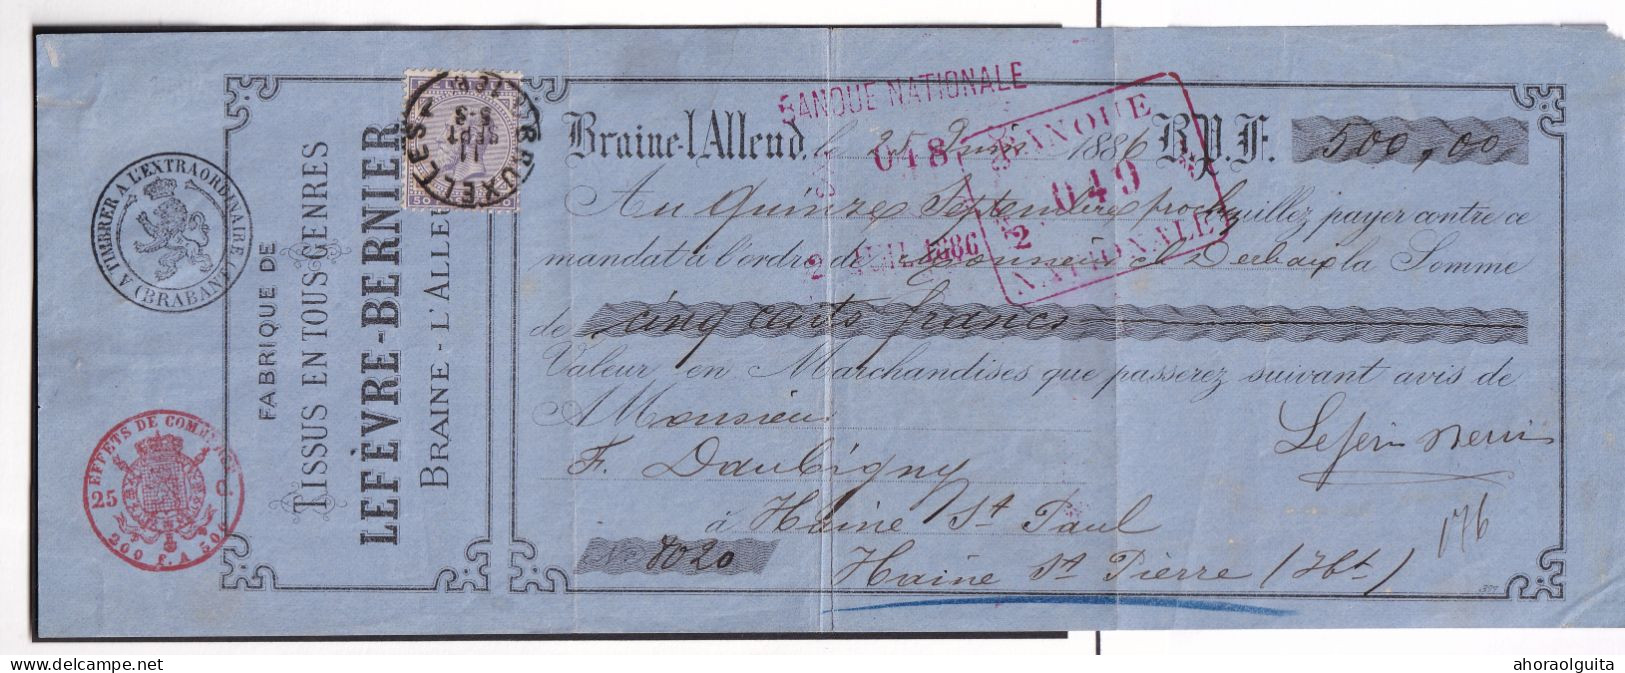 A TIMBRER A L'EXTRAORDINAIRE
(BRABANT)
EFFETS DE COMMERCE
25 C.
200 F. A 500
FABRIQUE DE
TISSUS EN TOUS GENRES
LEFÈVRE-BERNIER
BRAINE-L'ALLEU
BRUXELLES
11
SEPT
50
BANQUE NATIONALE
048
2 JUIL 1886
BANQUE
049
2
NATIONALE
Braine-l'Alleud, le 25 Juin 1886 B.P.F. 500,00
Au quinze Septembre proch veuillez payer contre ce
mandat à l'ordre de Monsieur Ch Derbaix la Somme
de cinq cents francs
Valeur en Marchandises que passerez suivant avis de
A Monsieur
F. Daubigny
à Haine St Paul
N° 8020 Haine St Pierre (Hbt)
176
ahoraolguita